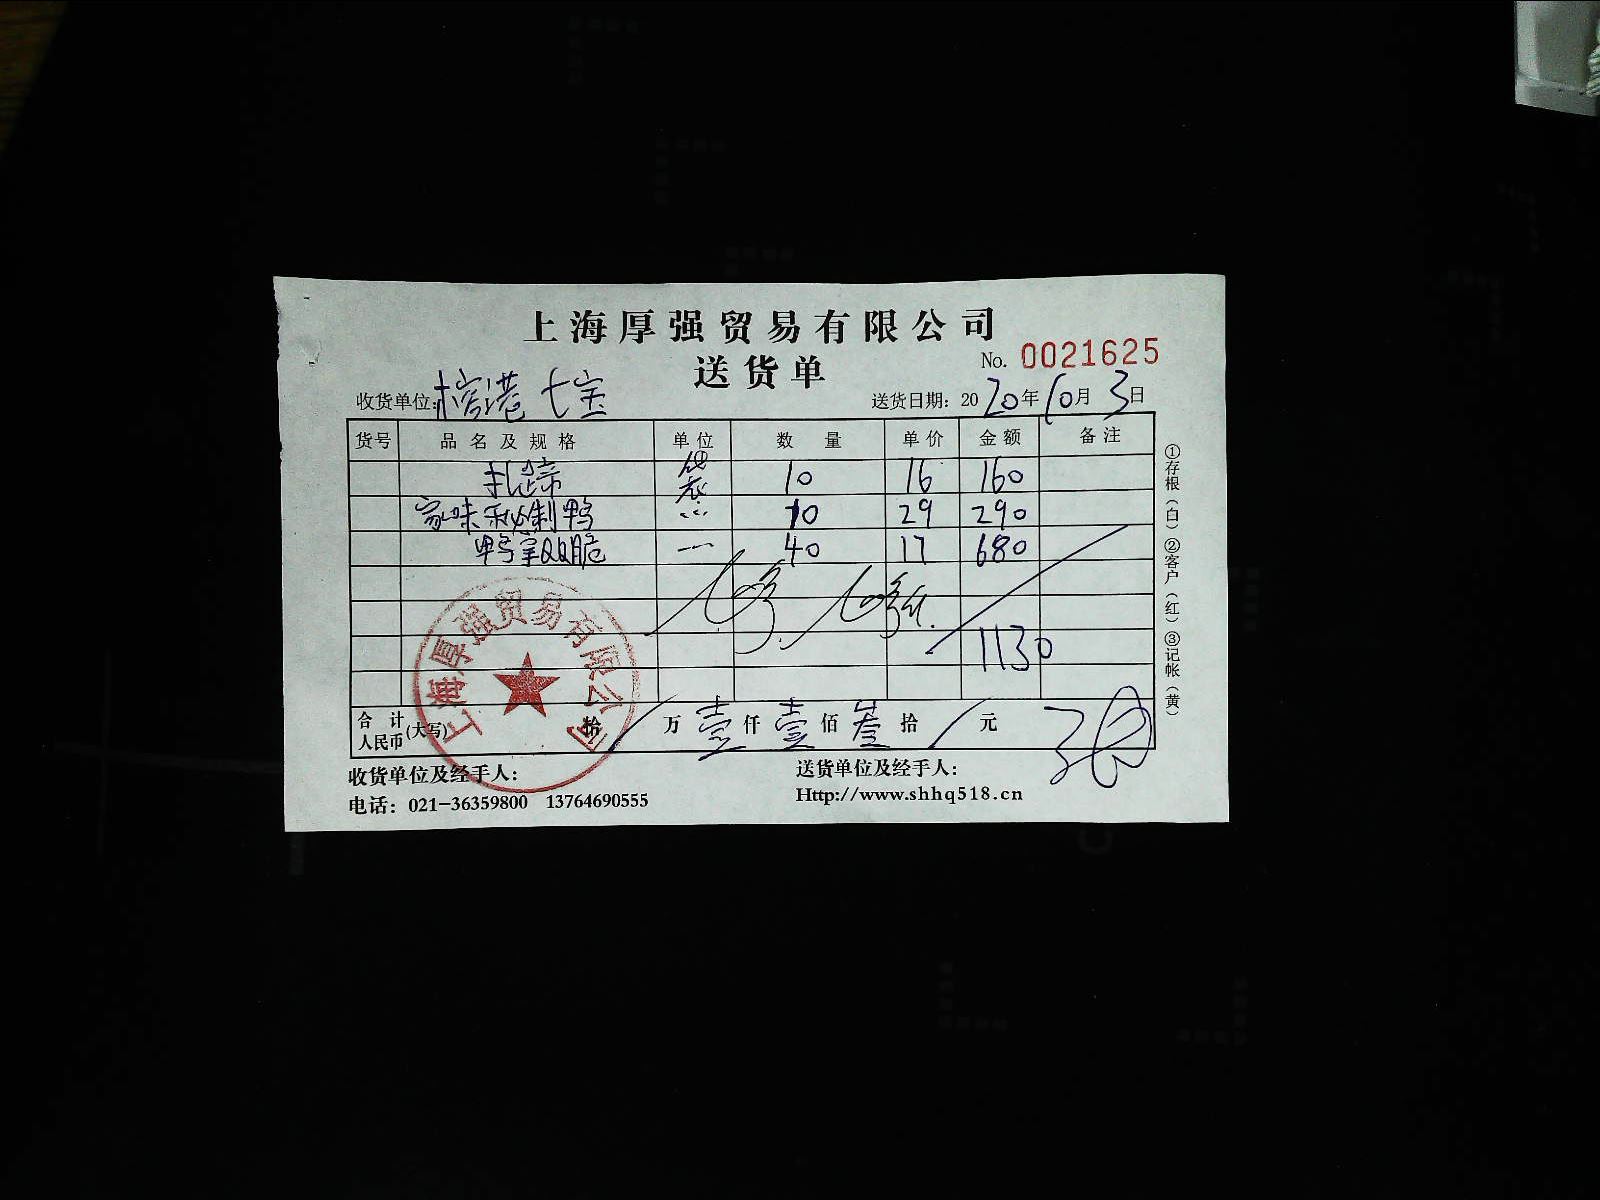 上海厚强贸易有限公司
送货单
No. 0021625
收货单位: 榕港 七宝
送货日期: 2020年10月3日
货号 品名及规格 单位 数量 单价 金额 备注
扎蹄 袋 10 16 160
家味秘制鸭 10 29 290
鸭掌QQ脆 40 17 680
1130
合计人民币(大写) 拾/万壹仟壹佰叁拾/元
收货单位及经手人:
送货单位及经手人:
电话: 021-36359800 13764690555
Http://www.shhq518.cn
①存根(白)②客户(红)③记帐(黄)
上海厚强贸易有限公司